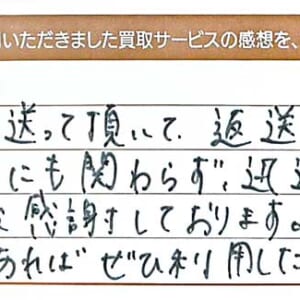 いただきました買取サービスの感想を、
送って頂いて、返送
にも関わらず、迅
感謝しております。
あれば ぜひ利用した